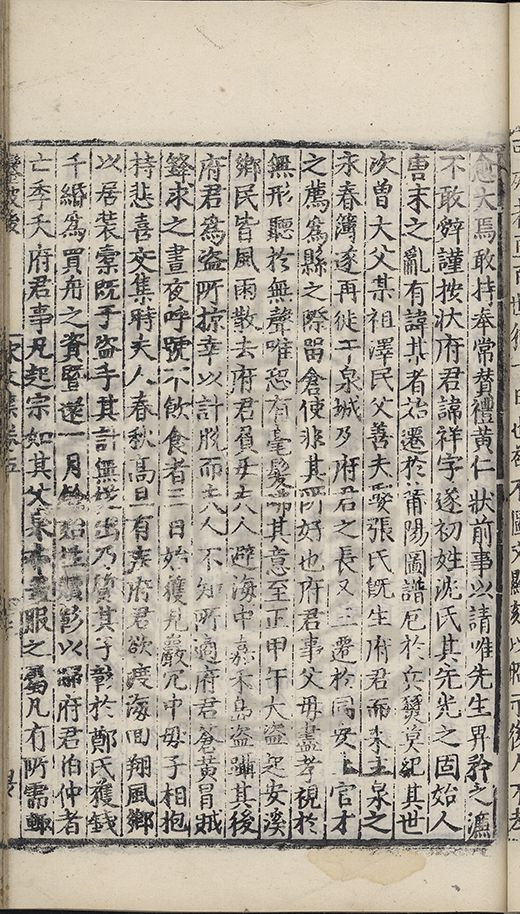 愈大焉敢持奉常贊禮黃仁狀前事以請唯先生畀矜之濂
不敢辭謹按狀府君諱祥字遂初姓沈氏其先光之固始人
唐末之亂有諱某者始遷於莆陽圖譜厄於兵燹莫紀其世
次曾大父某祖澤民父善夫娶張氏旣生府君而宋主泉之
永春簿遂再徙于泉城乃府君之長又三遷於同安上官才
之薦爲縣之際留倉使非其所好也府君事父母盡孝視於
無形聽於無聲唯恐有毫髮咈其意至正甲午大盜起安溪
鄉民皆風雨散去府君負母夫人避海中嘉禾島盜躡其後
府君爲盜所掠幸以計脫而夫人不知所適府君蒼黃冒賊
鋒求之晝夜呼號不飲食者三日始獲見巖穴中母子相抱
持悲喜交集時夫人春秋高且有疾府君欲渡海回翔風鄉
以居裝橐旣于盜手其計無從出乃質其子彰於鄭氏獲錢
千緡爲買舟之資暨還一月餘始往贖彰以歸府君伯仲者
亡季夭府君事凡起宗如其父衆 服之屬凡有所需輙